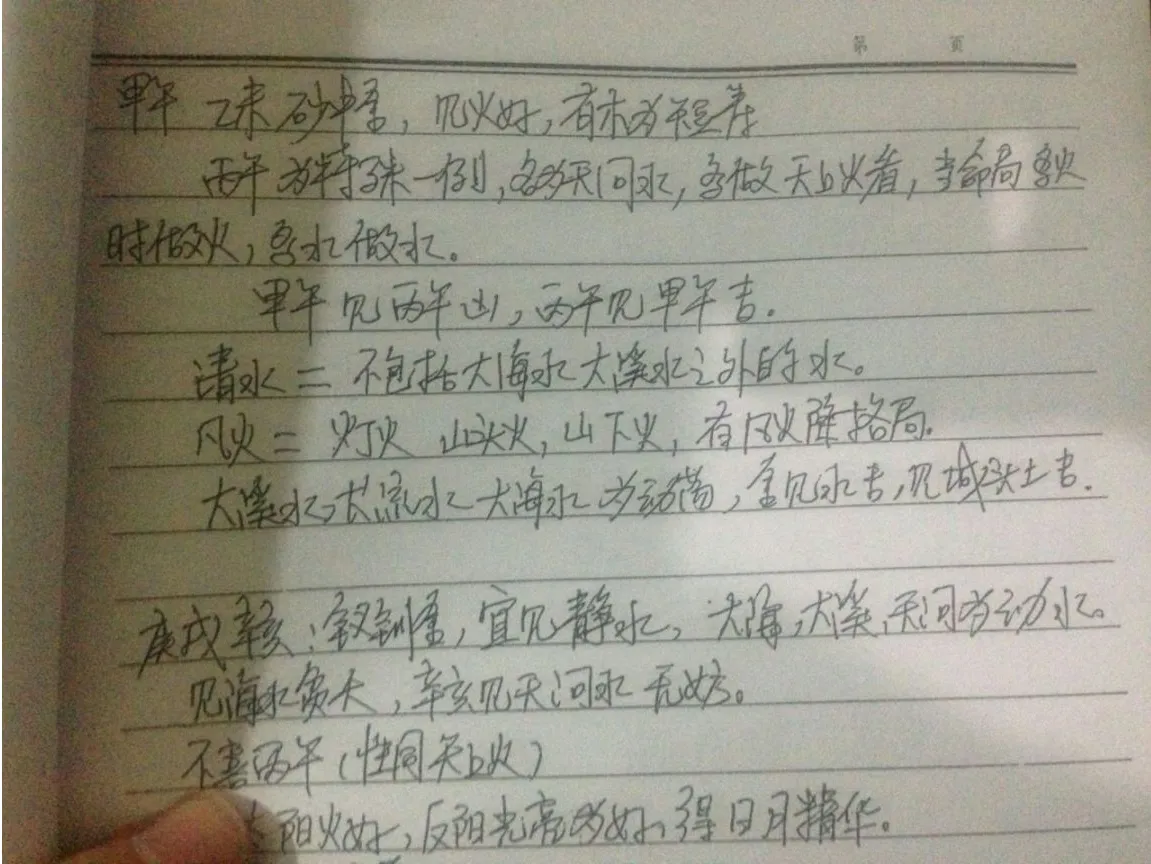 第 页
甲午 乙未 砂中金，见火好，有木为短寿
丙午为特殊一例，名为天河水，多做天上火看，当命局多火
时做火，多水做水。
甲午见丙午凶，丙午见甲午吉.
清水= 不包括大海水大溪水之外的水。
风火= 灯火 山头火，山下火，有风火降格局.
大溪水，长流水 大海水为动荡，金见水吉，见城头土吉.
庚戌辛亥：钗钏金，宜见静水，大海，大溪，天河为动水。
见海水贫夭，辛亥见天河水无妨。
不喜丙午（性同天上火）
阳火好，反阳光亮为好，得日月精华。